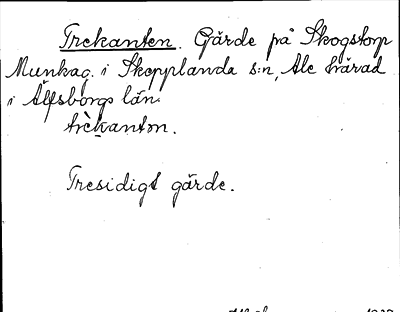 Trekanten. Gärde på Skogstorp
Munkag. i Skepplanda s:n, Ale härad
i Älfsborgs län.
trèkantn.
Tresidigt gärde.